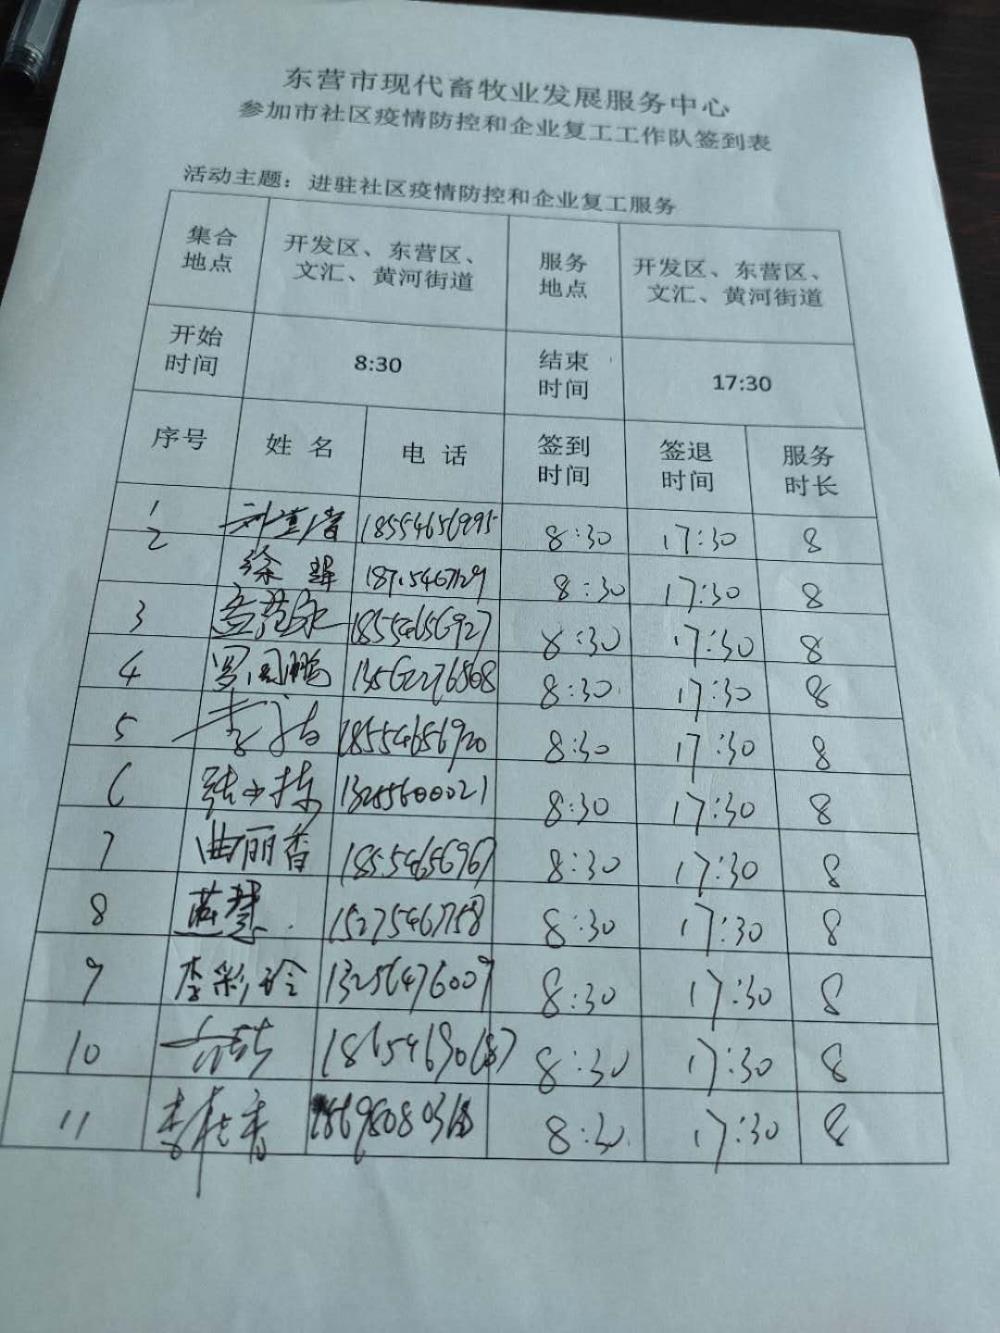 东营市现代畜牧业发展服务中心
参加市社区疫情防控和企业复工工作队签到表
活动主题：进驻社区疫情防控和企业复工服务
集合地点 开发区、东营区、文汇、黄河街道 服务地点 开发区、东营区、文汇、黄河街道
开始时间 8:30 结束时间 17:30
序号 姓名 电话 签到时间 签退时间 服务时长
1 18554656995 8:30 17:30 8
2 徐 8:30 17:30 8
3 18554656927 8:30 17:30 8
4 罗国鹏 13562276868 8:30 17:30 8
5 李 18554656920 8:30 17:30 8
6 张小栋 13255600021 8:30 17:30 8
7 曲丽香 18554656967 8:30 17:30 8
8 蓝慧 15275467158 8:30 17:30 8
9 李彩玲 13256476009 8:30 17:30 8
10 8:30 17:30 8
11 李桂香 8:30 17:30 8